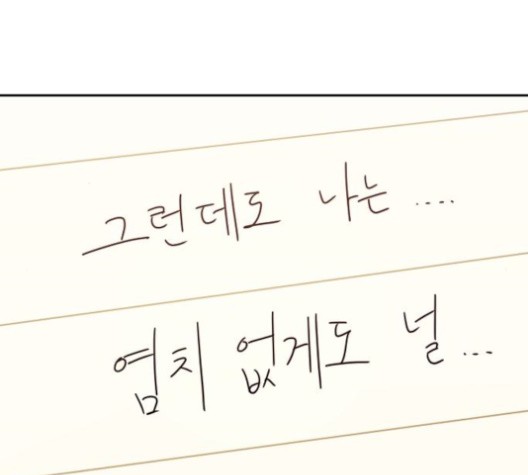 그런데도 나는 ....
염치 없게도 널 ...